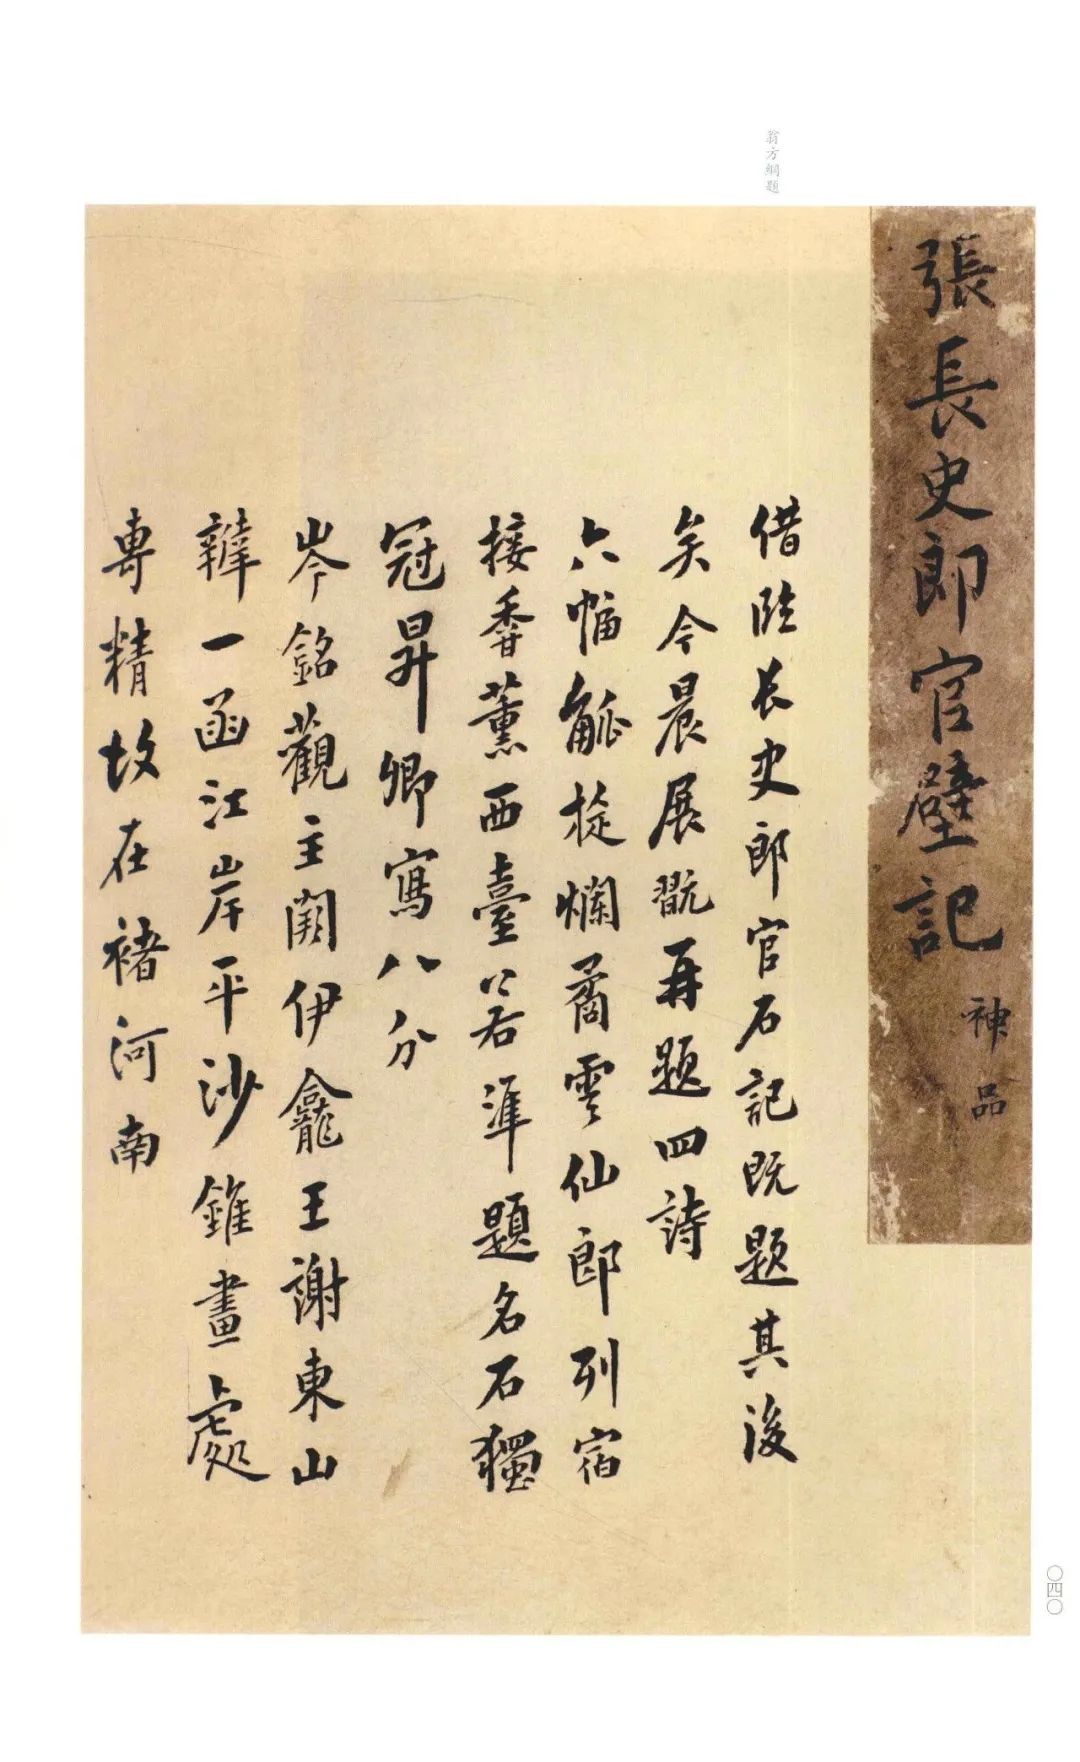 翁方綱題
張長史郎官壁記
神品
借臨長史郎官石記既題其後
矣今晨展翫再題四詩
六幅觚棱爛矞雲仙郎列宿
接香薰西臺若準題名石獨
冠昇卿寫八分
岑銘觀主闕伊龕王謝東山
辯一函江岸平沙錐畫處
專精故在褚河南
〇四〇